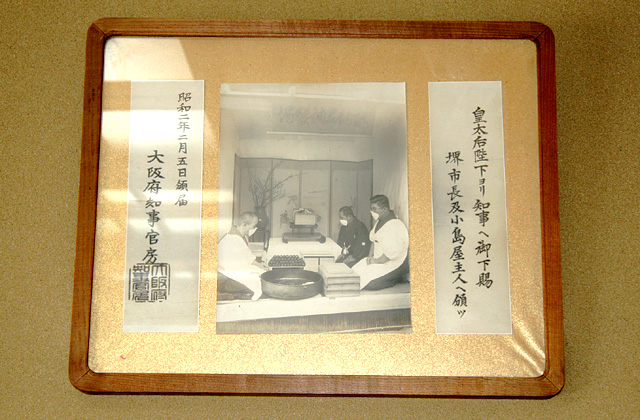 皇太后陛下ヨリ知事ヘ御下賜
堺市長及小島屋主人ヘ頒ツ
昭和二年二月五日頒届
大阪府知事官房